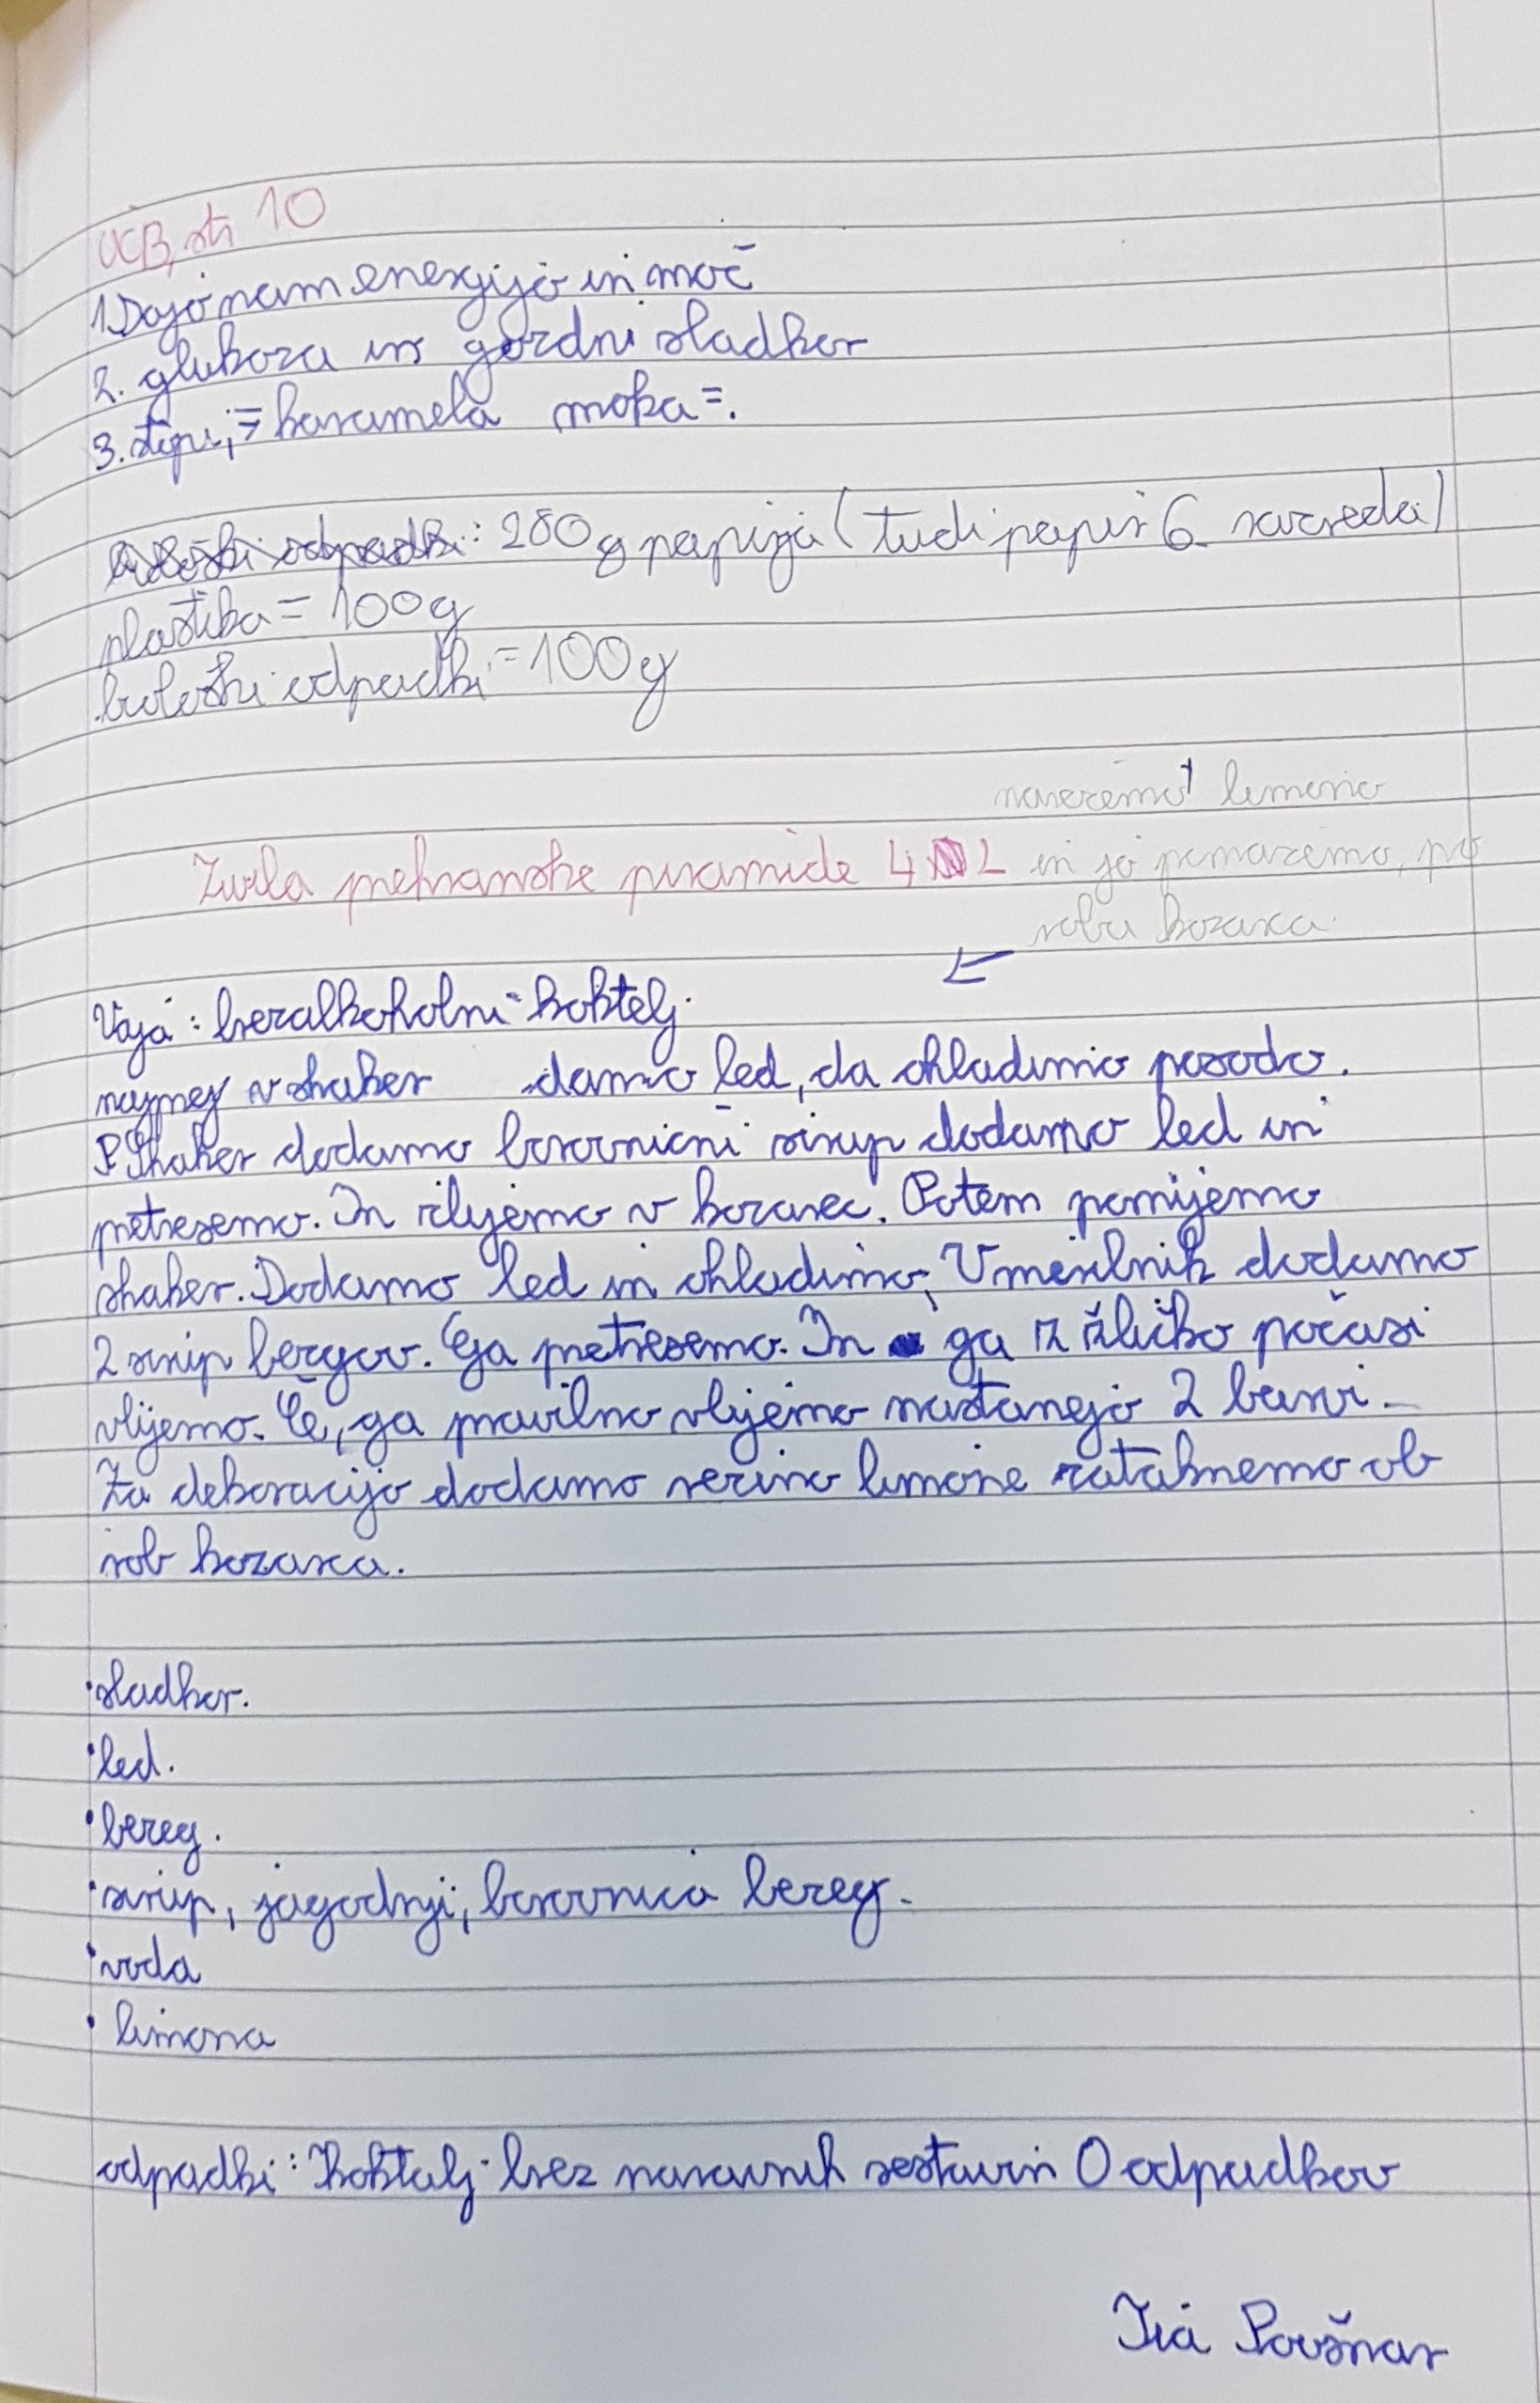 UČB, str 10
1. Dajo nam energijo in moč
2. glukoza in grozdni sladkor
3. stopi, = karamela moka =.
Ribiški odpadki: 280g papirja (tudi papir 6. razreda)
plastika = 100g
biološki odpadki = 100g
narežemo limono
Zvrsta prehranske piramide 4 L in jo pomažemo, po
robu kozarca.
Vaja: brezalkoholni koktelj.
najprej v shaker damo led, da ohladimo posodo.
Shaker dodamo borovnični sirup dodamo led in
pretresemo. In zlijemo v kozarec. Potem pomijemo
shaker. Dodamo led in ohladimo. V mešalnik dodamo
2 sirup bezgov. Ga pretresemo. In ga iz žličko počasi
vlijemo. Če, ga pravilno vlijemo nastanejo 2 barvi.
Za dekoracijo dodamo rezino limone zataknemo ob
rob kozarca.
• sladkor.
• led.
• bezeg.
• sirup, jagodnji, borovnica bezeg.
• voda
• limona
odpadki: Koktalj brez naravnih sestavin 0 odpadkov
Tia Povšnar